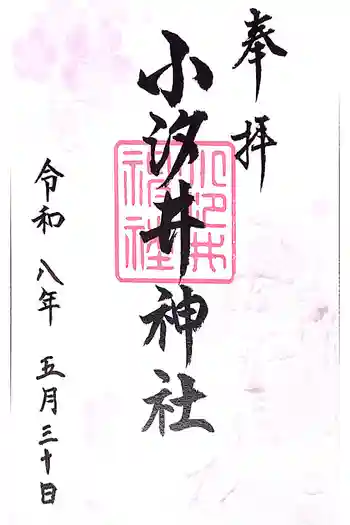 奉拝
小汐井神社
小汐井神社
令和八年 五月三十日